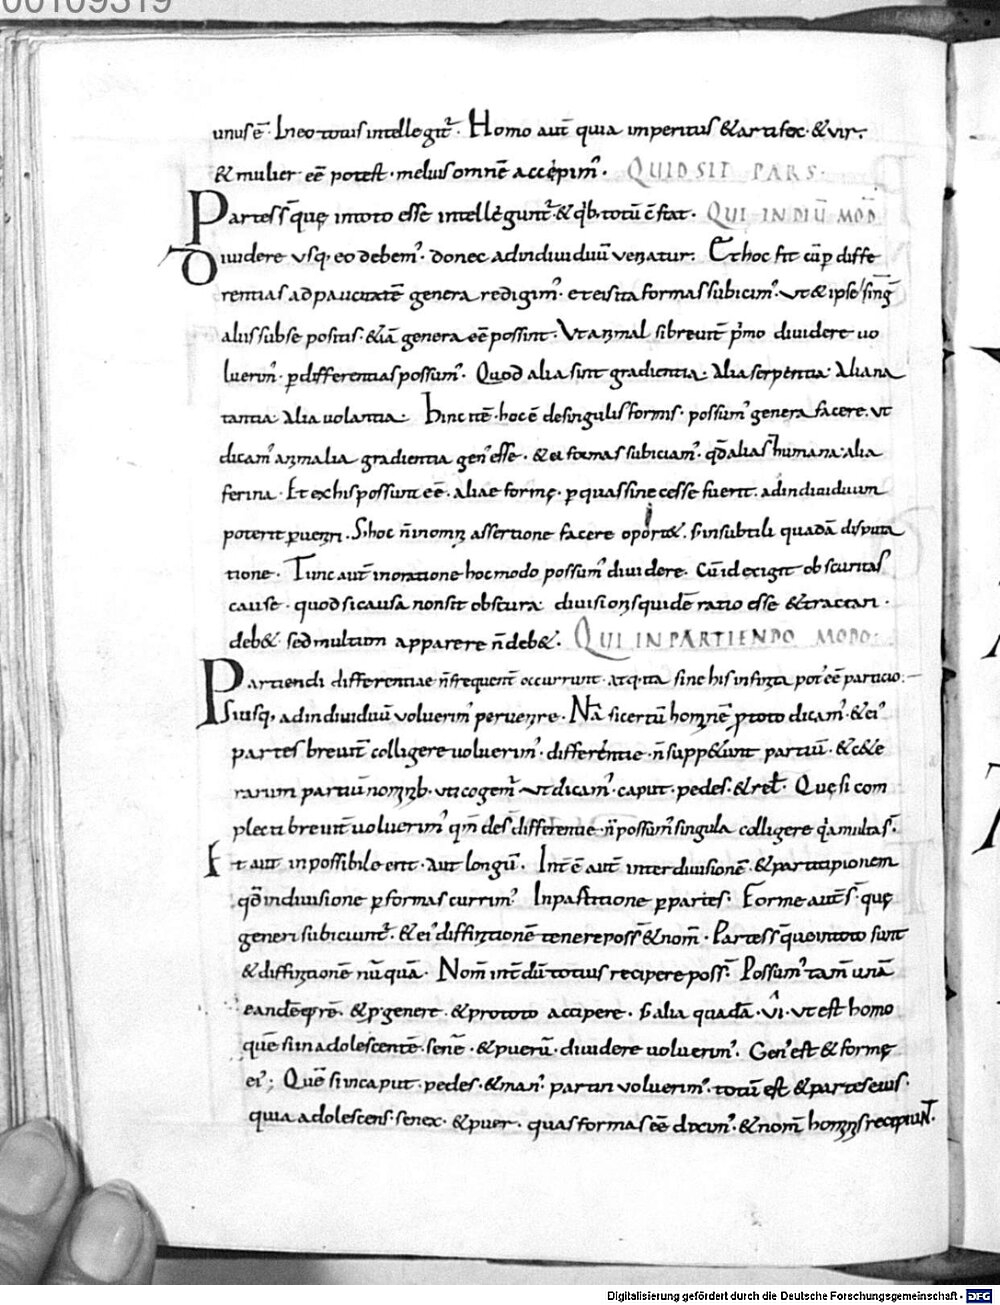 00109319
unus ē. In eo totius intellegit̄. Homo aut̄ quia imperitus & artifex. & vir.
& mulier eē potest. melius omnē accepim᾽. QUID SIT PARS.
Partes s̄ quę in toto esse intelleguntr̄. & q̇b. totū c̄stat. QUI IN DIUID̄ MOD̄
Diuidere vsq, eo debem᾽. donec ad indiuiduū veniatur. Et hoc fit cū p̄ diffe
rentias ad paucitatē genera redigim᾽. et eis ita formas subicim᾽. vt & ipsę sinḡ
aliis sub se positis. & iā genera eē possint. Vt animal si breuit̄ p̄mo diuidere uo
luerim᾽. p̄ differentias possum᾽. Quod alia sint gradientia. Alia serpentia. Alia na
tantia. Alia uolantia. Hinc itē. hoc ē de singulis formis. possum᾽ genera facere. vt
dicam᾽ animalia gradientia gen᾽ esse. & ei formas subiciam᾽. qd̄ alia s̄ humana. alia
ferina. Et ex his possunt eē. aliae formę. p̄ quas si necesse fuerit. ad indiuiduum
poterit p̄ueniri. S; hoc n̄ in omni assertione facere oport&. s; in subtili quadā disputa
tione. Tunc aut̄ in oratione hoc modo possum᾽ diuidere. Cū id exigit obscuritas
cause. quod si causa non sit obscura diuisionis quidē ratio esse & tractari.
deb& sed multum apparere n̄ deb&. QUI IN PARTIENDO MODO:
Partiendi differentiae n̄ frequent̄ occurrunt. atq, ita sine his infinita pot᾽ eē particio:
Si usq, ad indiuiduū voluerim᾽ peruenire. Nā si certū hominē p̄ toto dicam᾽. & ei᾽
partes breuit̄ colligere uoluerim᾽. differentie n̄ supp&unt partiū. & c&e
rarum partiū nominib. uti cogem̄. vt dicam᾽. caput. pedes. & rel̄. Quę si com
plecti breuit̄ uoluerim᾽ qm̄ des̄ differentie. n̄ possum᾽ singula colligere q̇a multa s̄.
Et aut inpossibile erit. aut longū. Int̄ ē aut̄ inter diuisionē. & partitionem
qd̄ in diuisione p̄ formas currim᾽. In partitione p̄ partes. Forme aut̄ s̄. quę
generi subiciunt̄. & ei᾽ diffinitionē tenere poss̄ & nom̄. Partes s̄ que in toto sunt
& diffinitionē nūquā. Nom̄ int̄dū totius recipere poss̄. Possum᾽ tam̄ unā
eandēq, rē. & p̄ genere. & pro toto accipere. s; alia quadā. ui. vt est homo
quē si in adolescentē. senē. & puerū. diuidere uoluerim᾽. Gen᾽ est & formę
ei᾽; Quē si in caput. pedes. & man᾽. partiri voluerim᾽. totū est & partes eius.
quia adolescens. senex. & puer. quas formas eē dixim᾽. & nom̄ hominis recipiunt.
Digitalisierung gefördert durch die Deutsche Forschungsgemeinschaft - DFG